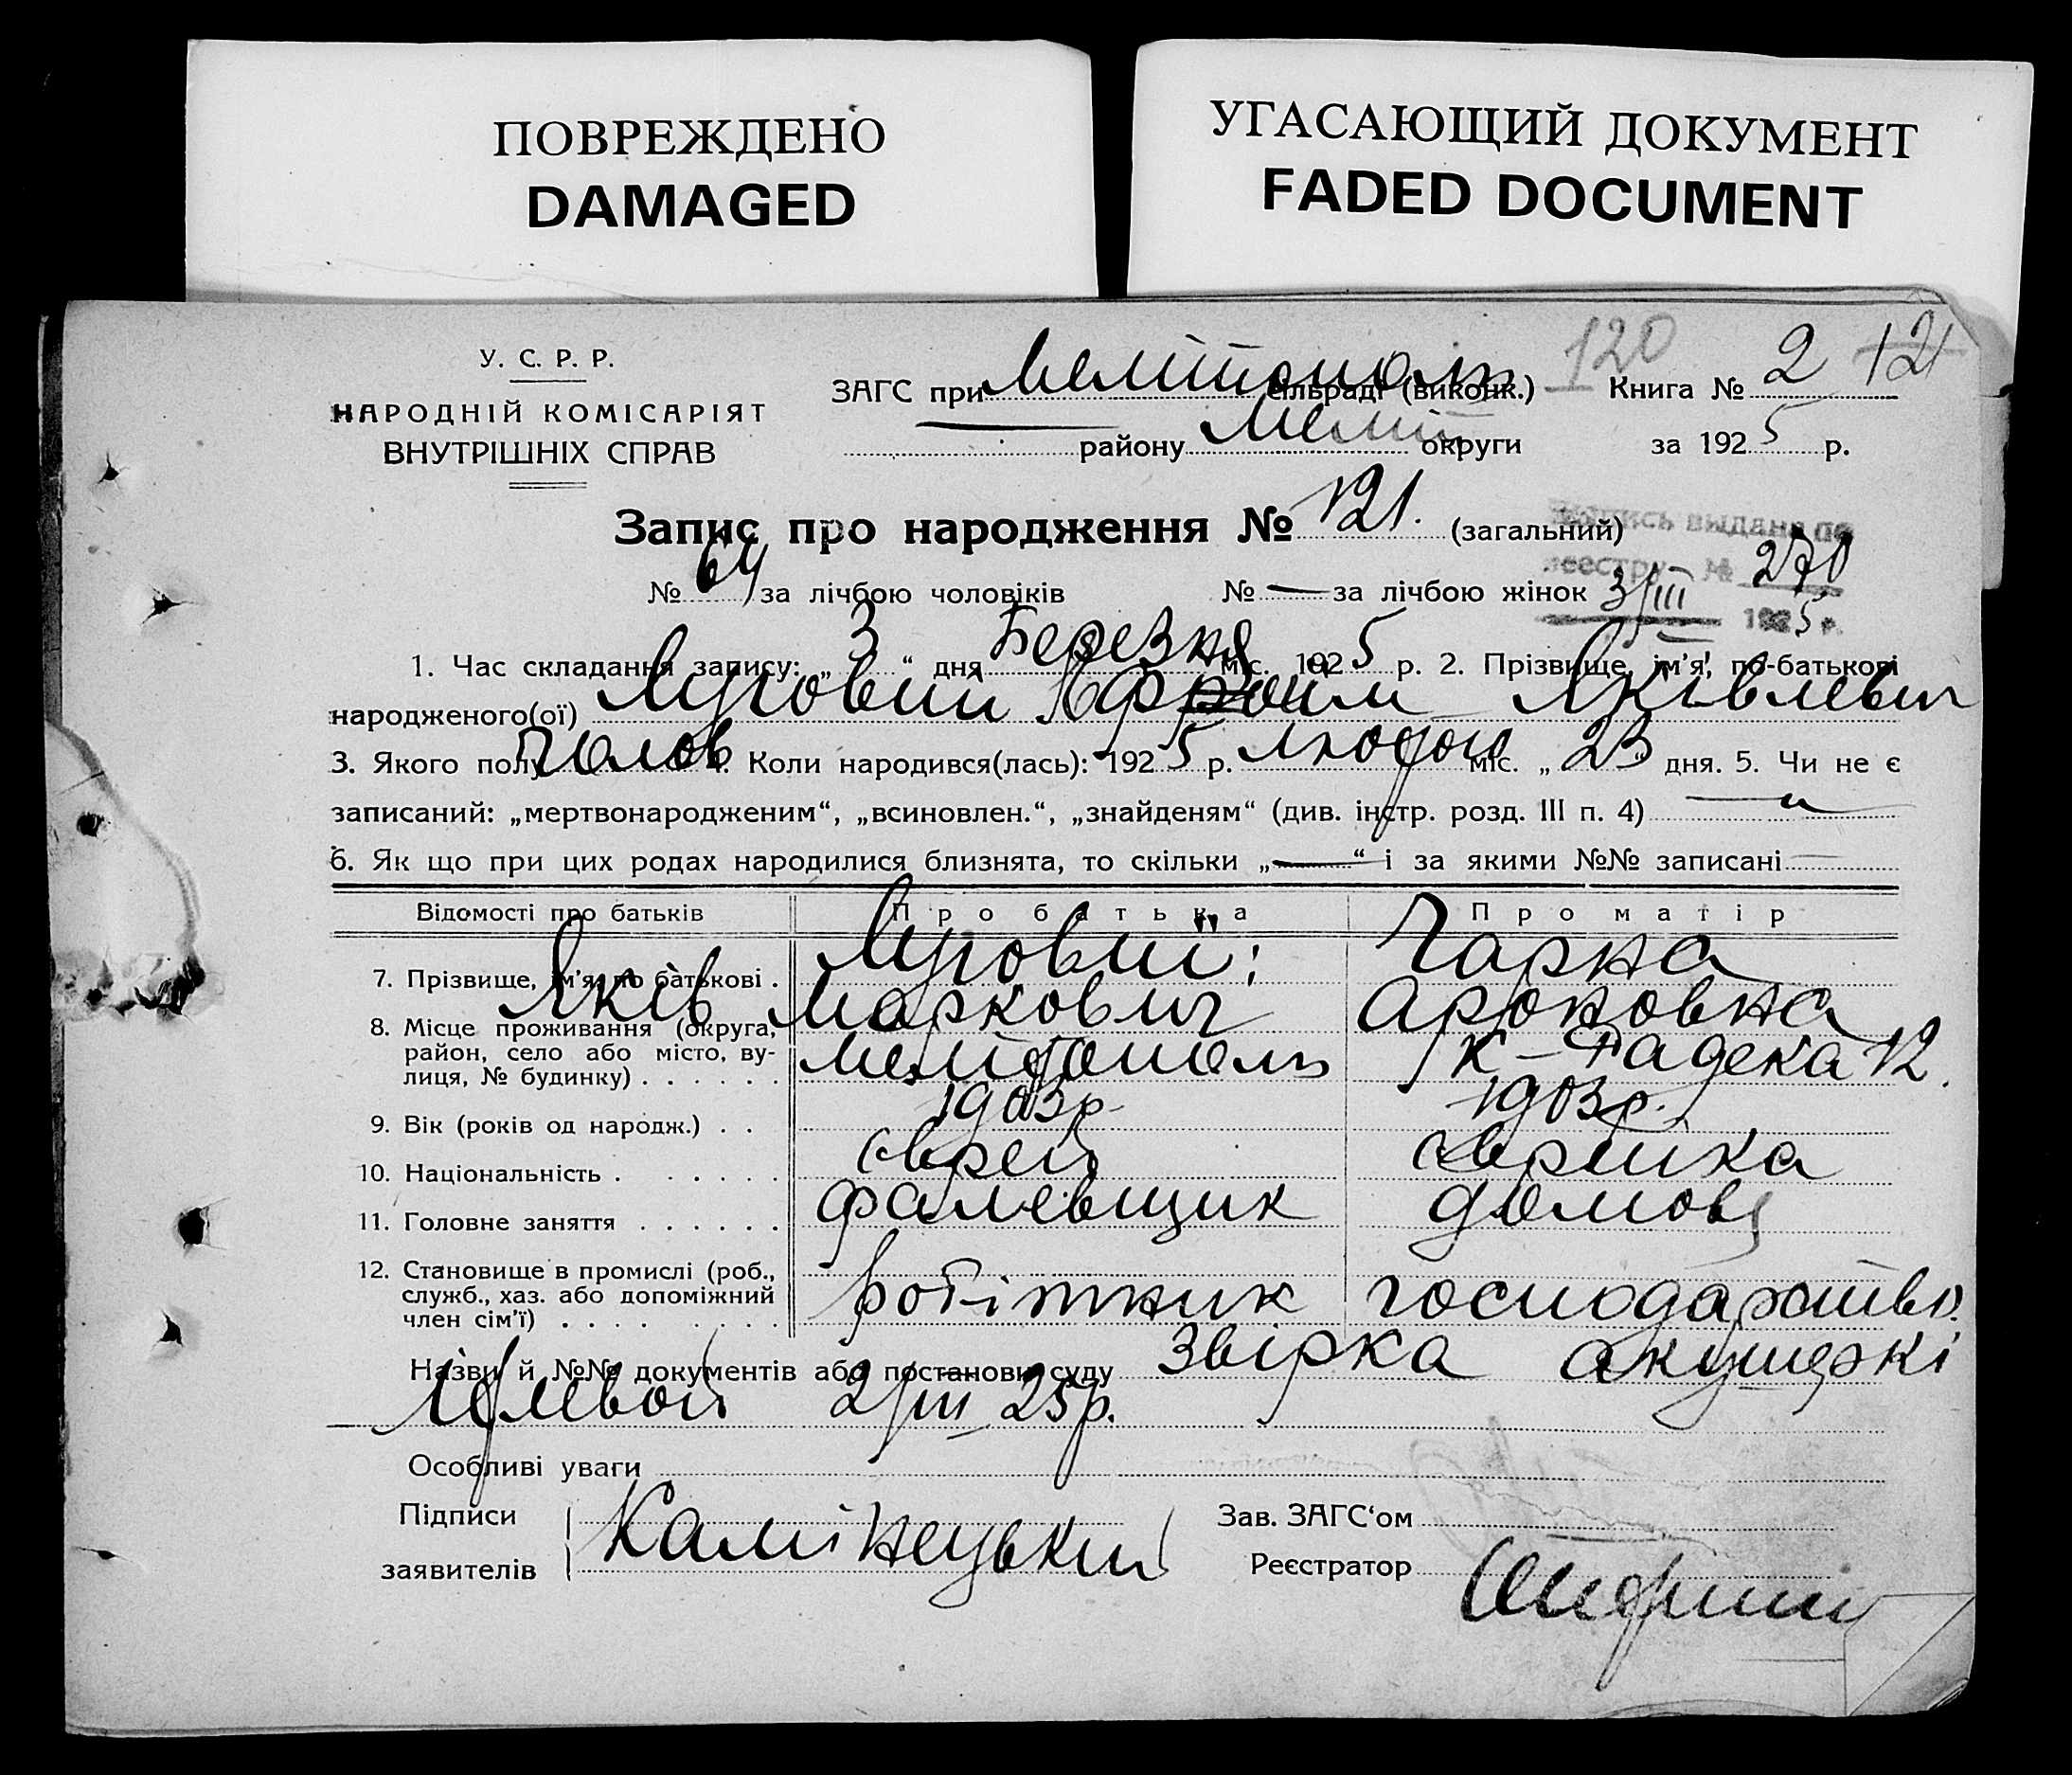 ПОВРЕЖДЕНО
DAMAGED
УГАСАЮЩИЙ ДОКУМЕНТ
FADED DOCUMENT
У. С. Р. Р.
НАРОДНІЙ КОМІСАРІЯТ
ВНУТРІШНІХ СПРАВ
120
121
ЗАГС при Мелітополь сільраді (виконк.) Книга № 2
району Меліт округи за 1925 р.
Запис про народження № 121. (загальний)
выдана по
реестру № 270
3/III 1925 р.
№ 64 за лічбою чоловіків № — за лічбою жінок
1. Час складання запису: „3“ дня Березня міс. 1925 р. 2. Прізвище, ім'я, по-батькові
народженого(ої) Яківлевич
3. Якого полу чолов 4. Коли народився(лась): 1925 р. лютого міс. „23 дня. 5. Чи не є
записаний: „мертвонародженим“, „всиновлен.“, „знайденям“ (див. інстр. розд. III п. 4)
6. Як що при цих родах народилися близнята, то скільки „—“ і за якими №№ записані —
Відомості про батьків Про батька Про матір
7. Прізвище, ім'я, по батькові . Луговий: Чарна
Яків Маркович Ароновна
8. Місце проживання (округа, район, село або місто, вулиця, № будинку) . . . . . . Мелітополь К-Радека 12.
9. Вік (років од народж.) . . 1903р. 1903р.
10. Національність . . . . . . єврей єврейка
11. Головне заняття . . . . . . домове
12. Становище в промислі (роб., служб., хаз. або допоміжний член сім'ї) . . . . . . . . робітник господарство.
Назви й №№ документів або постанови суду Звірка акушерки
2/III 25р.
Особливі уваги
Підписи
заявителів
Камінецький
Зав. ЗАГС'ом
Реєстратор